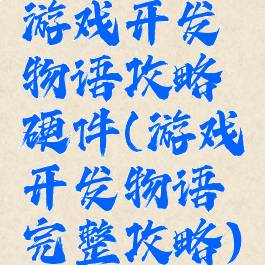 游戏开发
物语攻略
硬件(游戏
开发物语
完整攻略)